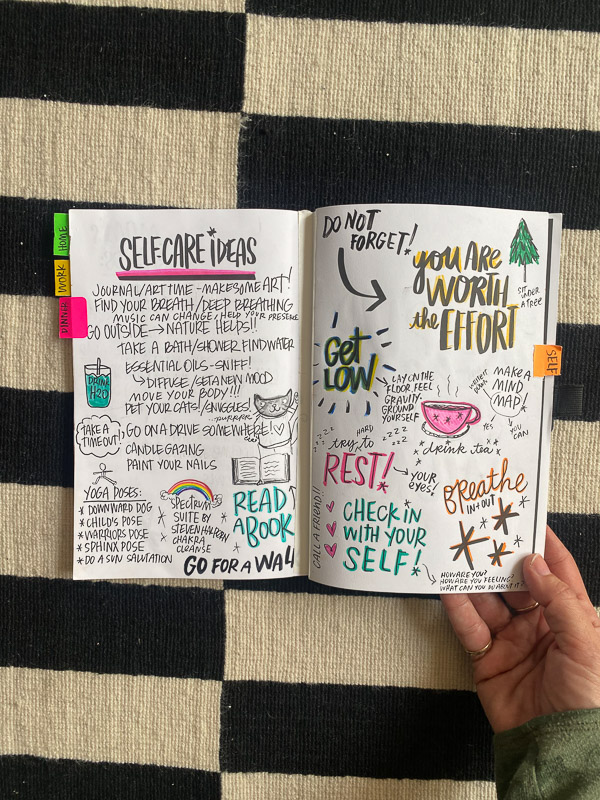 HOME
WORK
DINNER
SELF CARE IDEAS
JOURNAL/ART TIME - MAKE SOME ART!
FIND YOUR BREATH/DEEP BREATHING
MUSIC CAN CHANGE, HELP YOUR PRESENCE
GO OUTSIDE → NATURE HELPS!!
TAKE A BATH/SHOWER FIND WATER
ESSENTIAL OILS - SNIFF!
→ DIFFUSE/SET A NEW MOOD
MOVE YOUR BODY!!!
PET YOUR CATS!/SNUGGLES!
DRINK
H2O
TAKE A
TIMEOUT!
GO ON A DRIVE SOMEWHERE!
CANDLEGAZING
PAINT YOUR NAILS
YOGA POSES:
* DOWNWARD DOG
* CHILD'S POSE
* WARRIORS POSE
* SPHINX POSE
* DO A SUN SALUTATION
SPECTRUM
SUITE BY
STEVEN HALPERN
CHAKRA
CLEANSE
READ
A BOOK
GO FOR A WALK
DO NOT
FORGET!
you ARE
WORTH
the EFFORT
SIT
UNDER
A TREE
SELF
Get
LOW
LAY ON THE
FLOOR FEEL
GRAVITY-
GROUND
YOURSELF
MAKE A
MIND
MAP!
YES
YOU
CAN
drink tea
zzzz
zzzz
HARD
try to
REST!
YOUR
EYES!
Breathe
IN + OUT
CALL A FRIEND!!
CHECK IN
WITH YOUR
SELF!
HOW ARE YOU?
HOW ARE YOU FEELING?
WHAT CAN YOU DO ABOUT IT